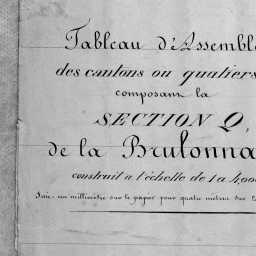 Tableau d'Assembl
des cantons ou quatiers
composant la
SECTION Q,
de la Brulonna
construit à l'échelle de 1 à 4,00
Soit, un millimètre sur le papier pour quatre mètres sur l